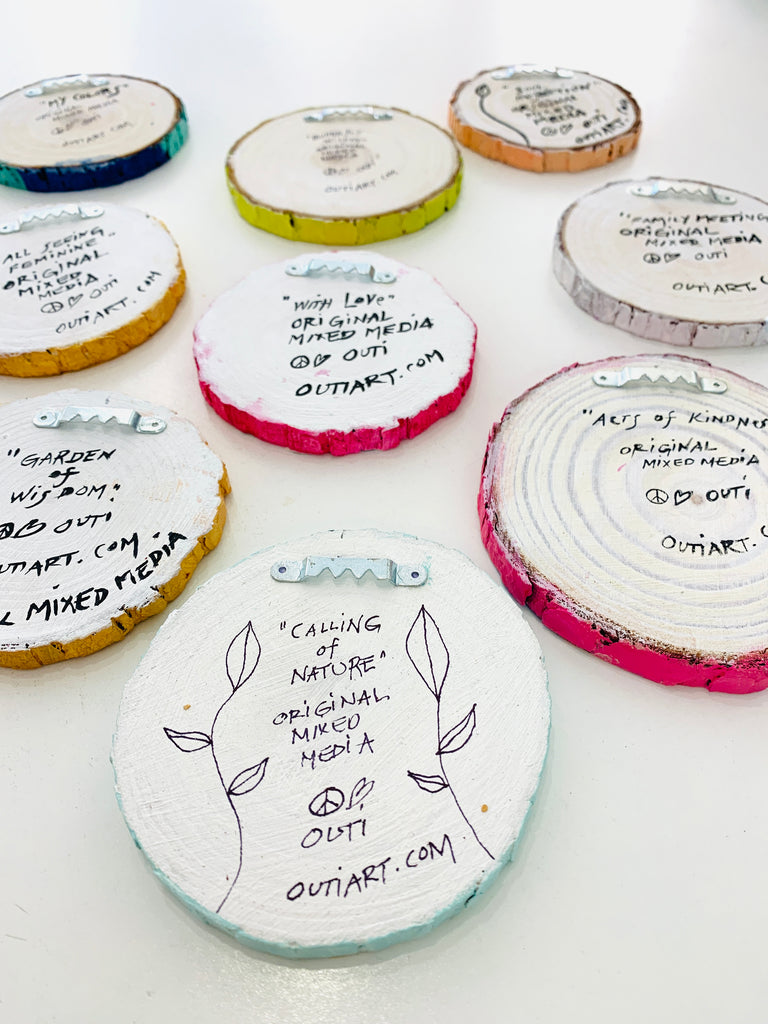 "MY COLORS"
ORIGINAL
MIXED MEDIA
OUTI
OUTIART.COM
ORIGINAL
MIXED
MEDIA
OUTI
OUTIART.COM
MEDIA
OUTI
OUTIART.COM
ALL SEEING
FEMININE
ORIGINAL
MIXED
MEDIA
OUTI
OUTIART.COM
"WITH LOVE"
ORIGINAL
MIXED MEDIA
OUTI
OUTIART.COM
"FAMILY MEETING
ORIGINAL
MIXED MEDIA
OUTI
OUTIART.C
"GARDEN
of
WISDOM"
OUTI
OUTIART.COM
L MIXED MEDIA
"ACTS of KINDNES
ORIGINAL
MIXED MEDIA
OUTI
OUTIART.C
"CALLING
of
NATURE"
ORIGINAL
MIXED
MEDIA
OUTI
OUTIART.COM